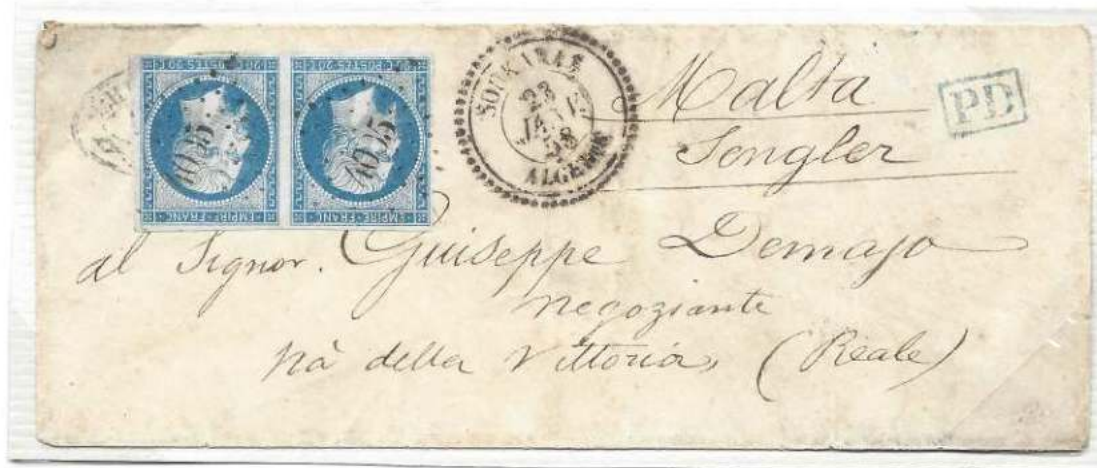 POSTES 20 C. POSTES 20 C.
EMPIRE FRANC EMPIRE FRANC
4055 4055
SOUK ARAS
23
JANV
58
ALGERIE
PD
Malta
Sengler
al Signor. Guiseppe Demajo
negoziante
Via della Vittoria, (Reale)